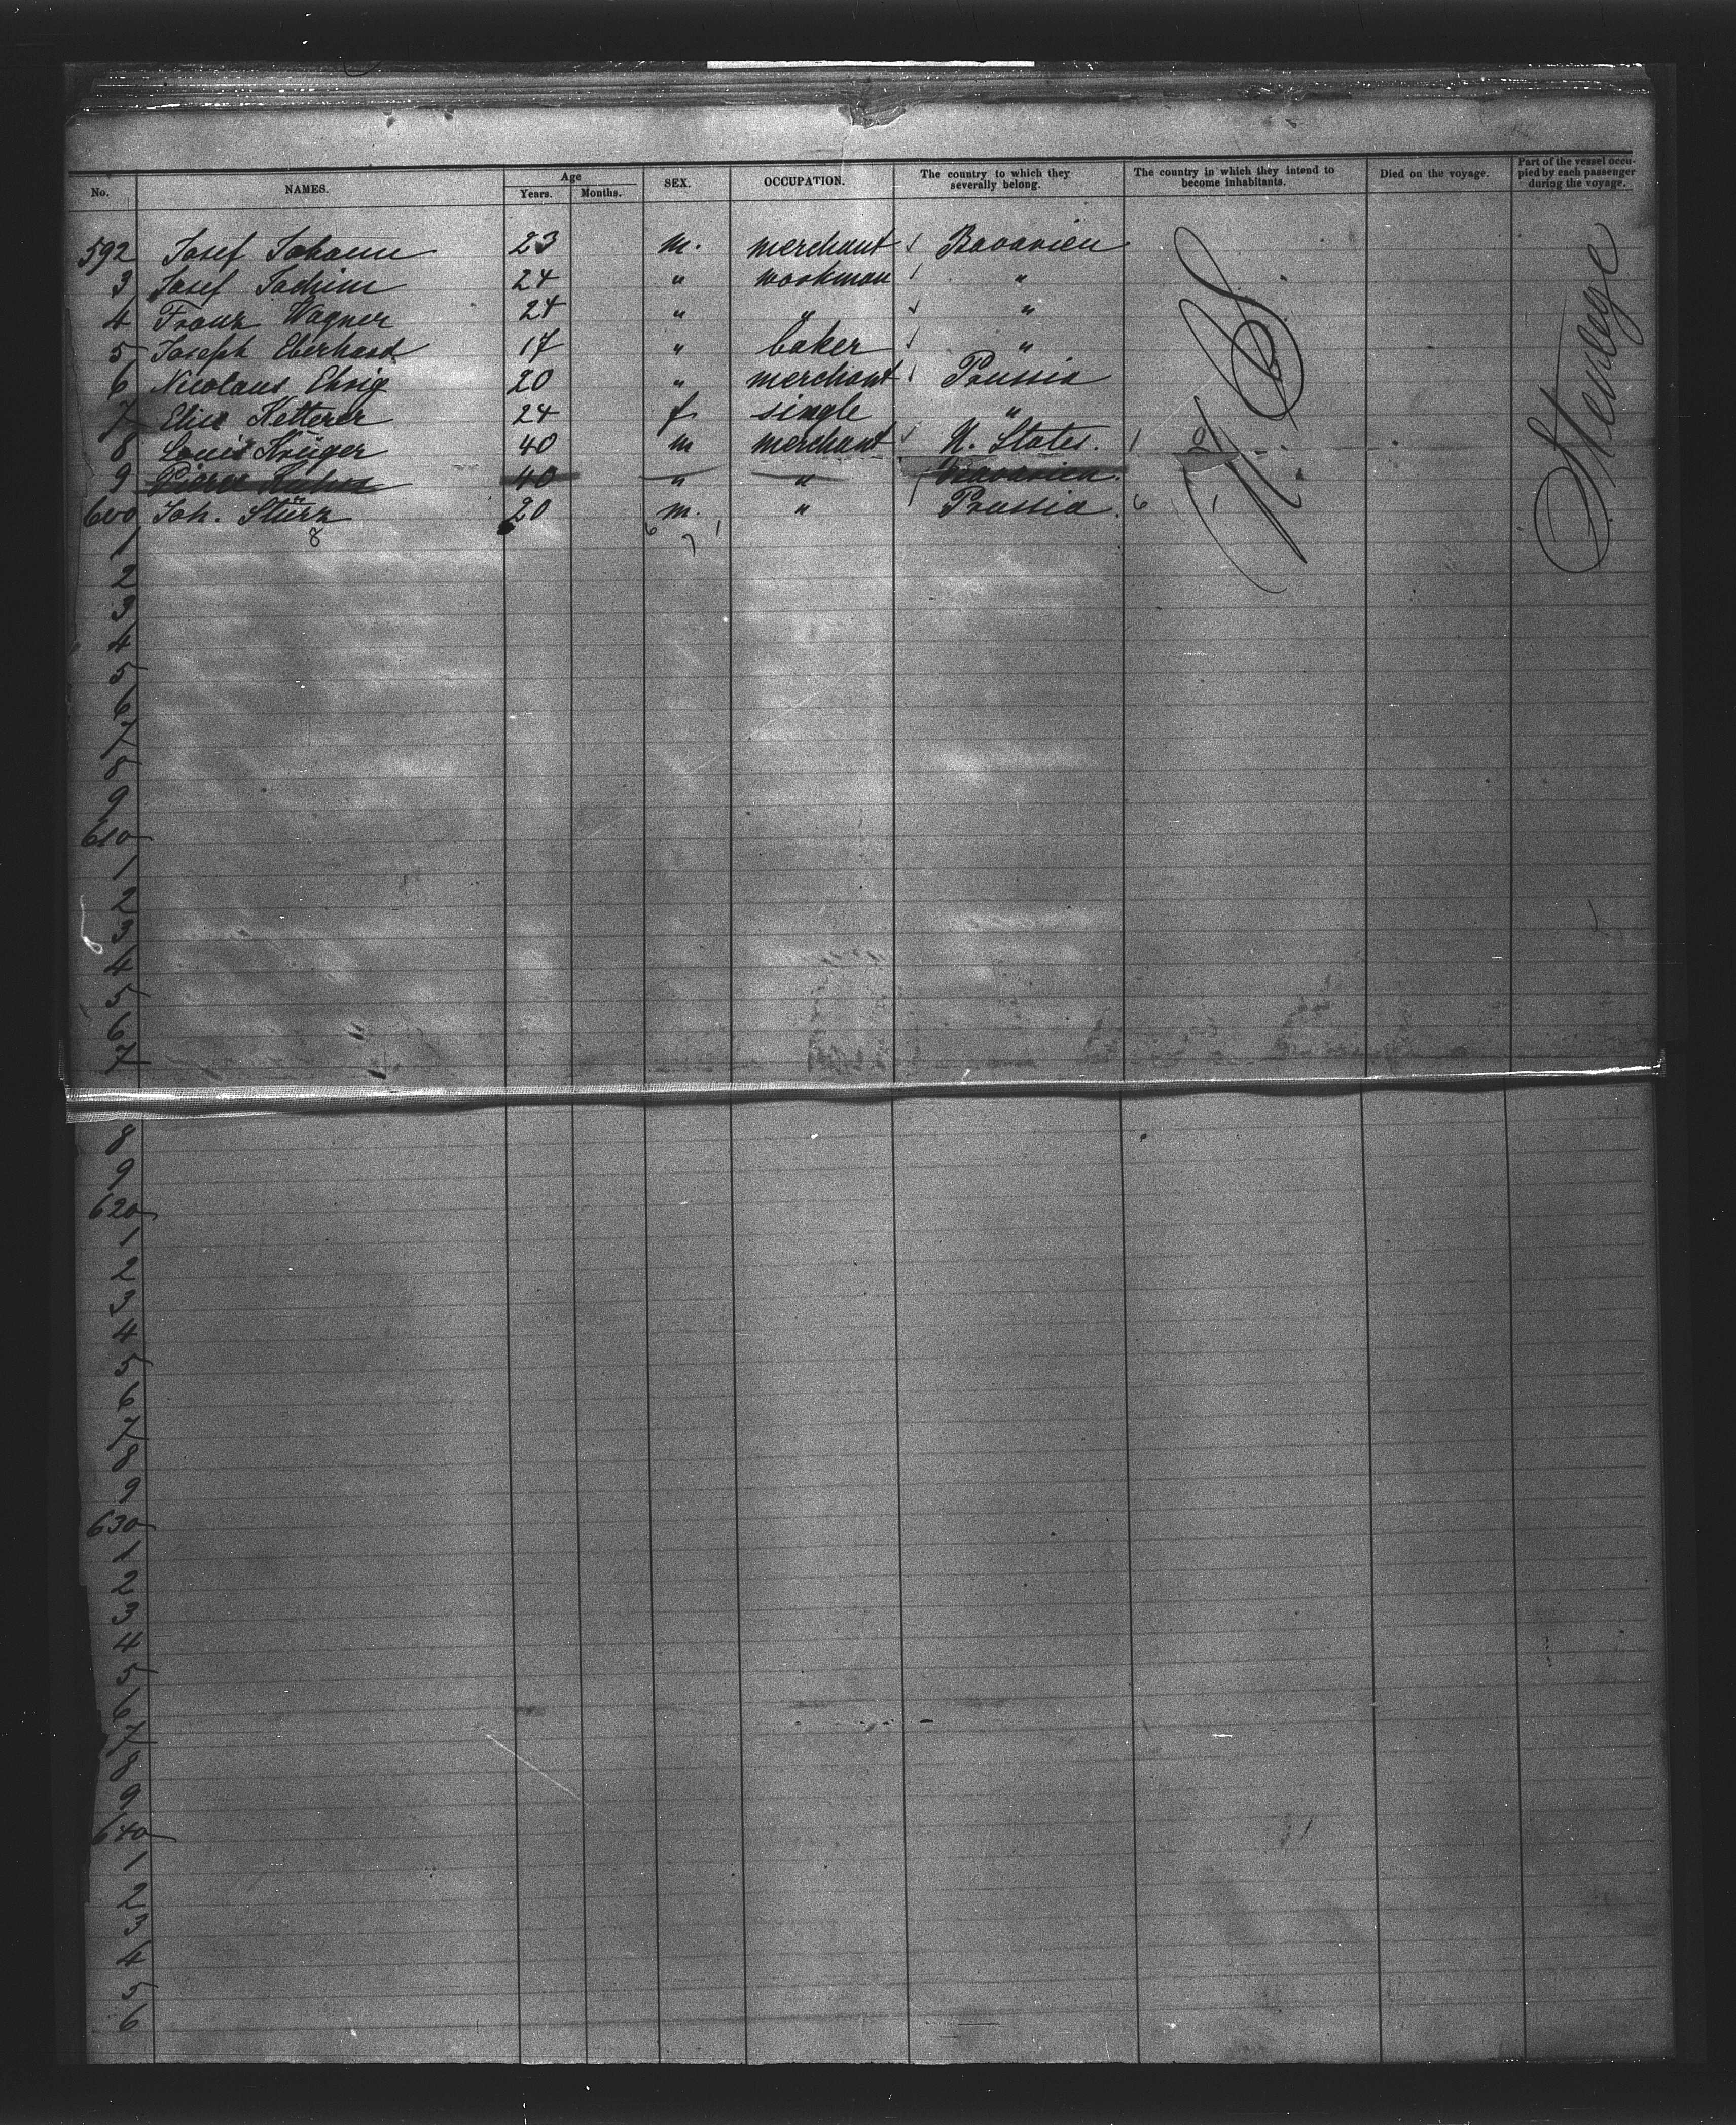 No. NAMES. Age Years. Months. SEX. OCCUPATION. The country to which they severally belong. The country in which they intend to become inhabitants. Died on the voyage. Part of the vessel occupied by each passenger during the voyage.
592 Josef Johann 23 m. merchant Bavarien
3 Josef Jochim 24 " workman "
4 Franz Wagner 24 " " "
5 Joseph Eberhard 17 " baker "
6 Nicolaus Ehrig 20 " merchant Prussia
7 Elise Ketterer 24 f. single "
8 Louis Krüger 40 m merchant U. States. 1
9 40 " " Bavarien.
600 Joh. Stürz 20 m. " Prussia. 6 1
8 6 1
7
U S
Steerage
1
2
3
4
5
6
7
8
9
610
1
2
3
4
5
6
7
8
9
620
1
2
3
4
5
6
7
8
9
630
1
2
3
4
5
6
7
8
9
640
1
2
3
4
5
6